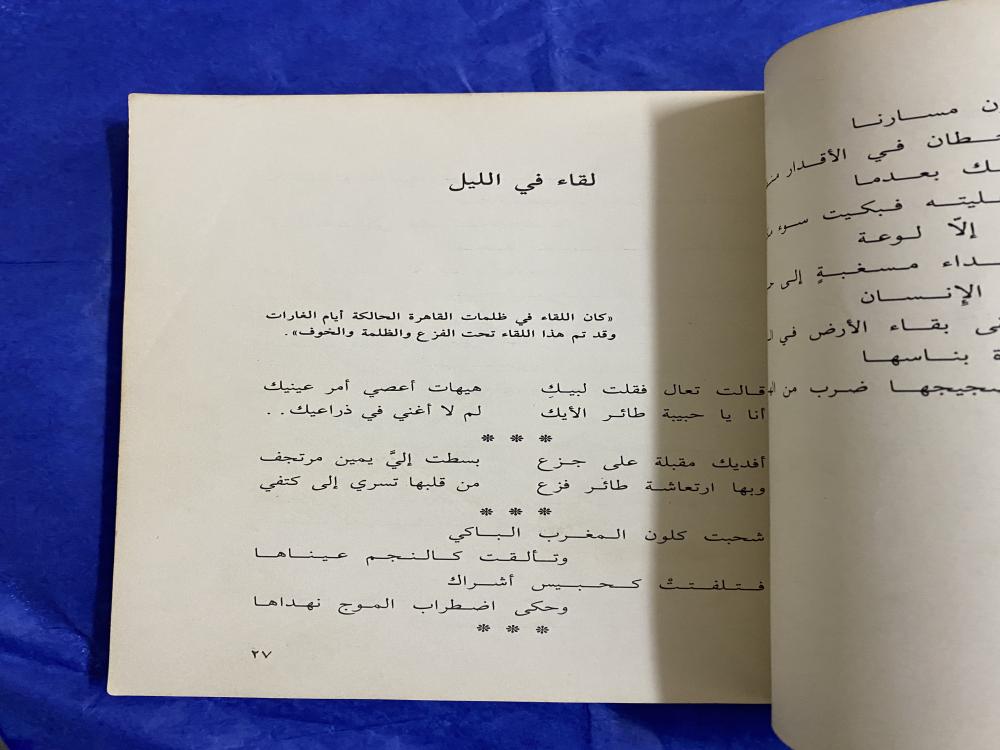 لقاء في الليل
«كان اللقاء في ظلمات القاهرة الحالكة أيام الغارات
وقد تم هذا اللقاء تحت الفزع والظلمة والخوف».
قالت تعال فقلت لبيكِ هيهات أعصي أمر عينيك
أنا يا حبيبة طائر الأيك لم لا أغني في ذراعيك..
* * *
أفديك مقبلة على جزع بسطت إليَّ يمين مرتجف
وبها ارتعاشة طائر فزع من قلبها تسري إلى كتفي
* * *
شحبت كلون المغرب الباكي
وتألقت كالنجم عيناها
فتلفتتْ كحبيس أشراك
وحكى اضطراب الموج نهداها
* * *
٢٧
مسارنا
في الأقدار
بعدما
فبكيت سوء
إلاّ لوعة
مسغبةٍ إلى
الإنسان
بقاء الأرض في
بناسها
ضرب من